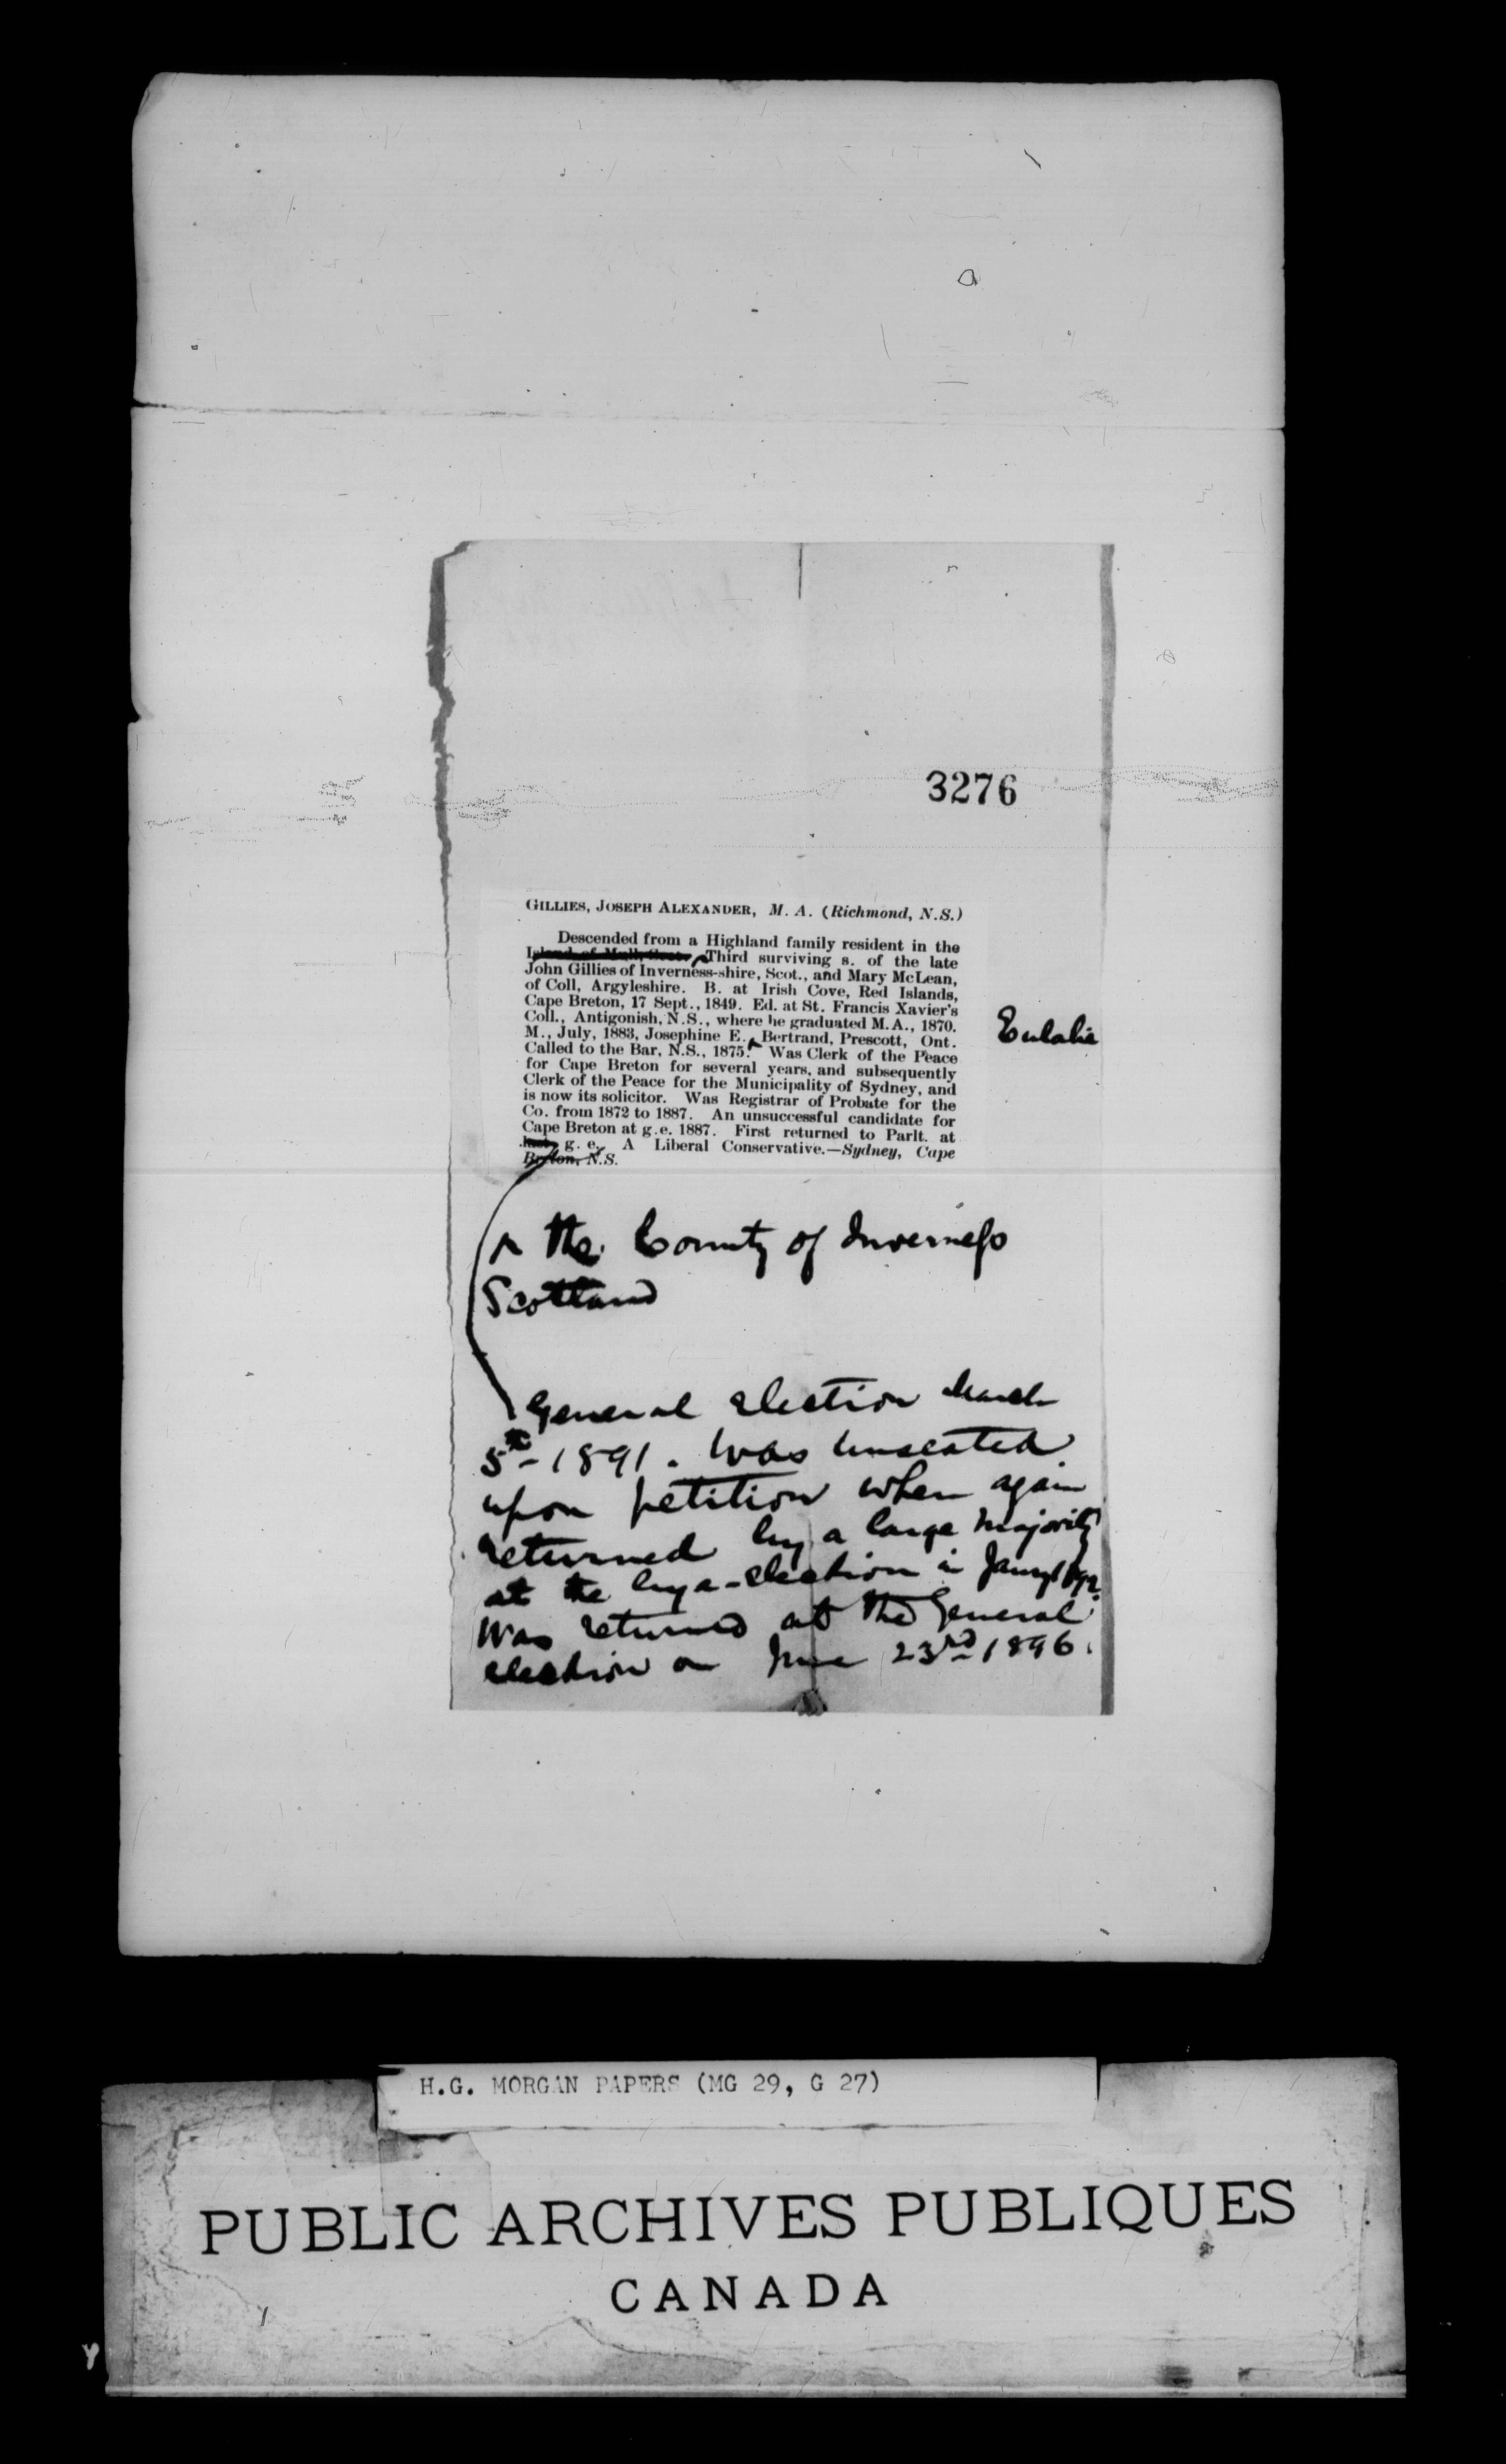 3276
GILLIES, JOSEPH ALEXANDER, M. A. (Richmond, N.S.)
Descended from a Highland family resident in the
Island of Mull, Scot. ^ Third surviving s. of the late
John Gillies of Inverness-shire, Scot., and Mary McLean,
of Coll, Argyleshire. B. at Irish Cove, Red Islands,
Cape Breton, 17 Sept., 1849. Ed. at St. Francis Xavier's
Coll., Antigonish, N.S., where he graduated M.A., 1870.
M., July, 1883, Josephine E. ^ Bertrand, Prescott, Ont.
Eulalie
Called to the Bar, N.S., 1875. Was Clerk of the Peace
for Cape Breton for several years, and subsequently
Clerk of the Peace for the Municipality of Sydney, and
is now its solicitor. Was Registrar of Probate for the
Co. from 1872 to 1887. An unsuccessful candidate for
Cape Breton at g.e. 1887. First returned to Parlt. at
last g. e. A Liberal Conservative.—Sydney, Cape
Breton, N.S.
^ the County of Inverness
Scotland
General election March
5th 1891. Was unseated
upon petition when again
returned by a large majority
at the bye-election in Jany 1892.
Was returned at the General
election on June 23rd 1896.
H.G. MORGAN PAPERS (MG 29, G 27)
PUBLIC ARCHIVES PUBLIQUES
CANADA